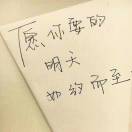 「愿你要的
明天
如约而至